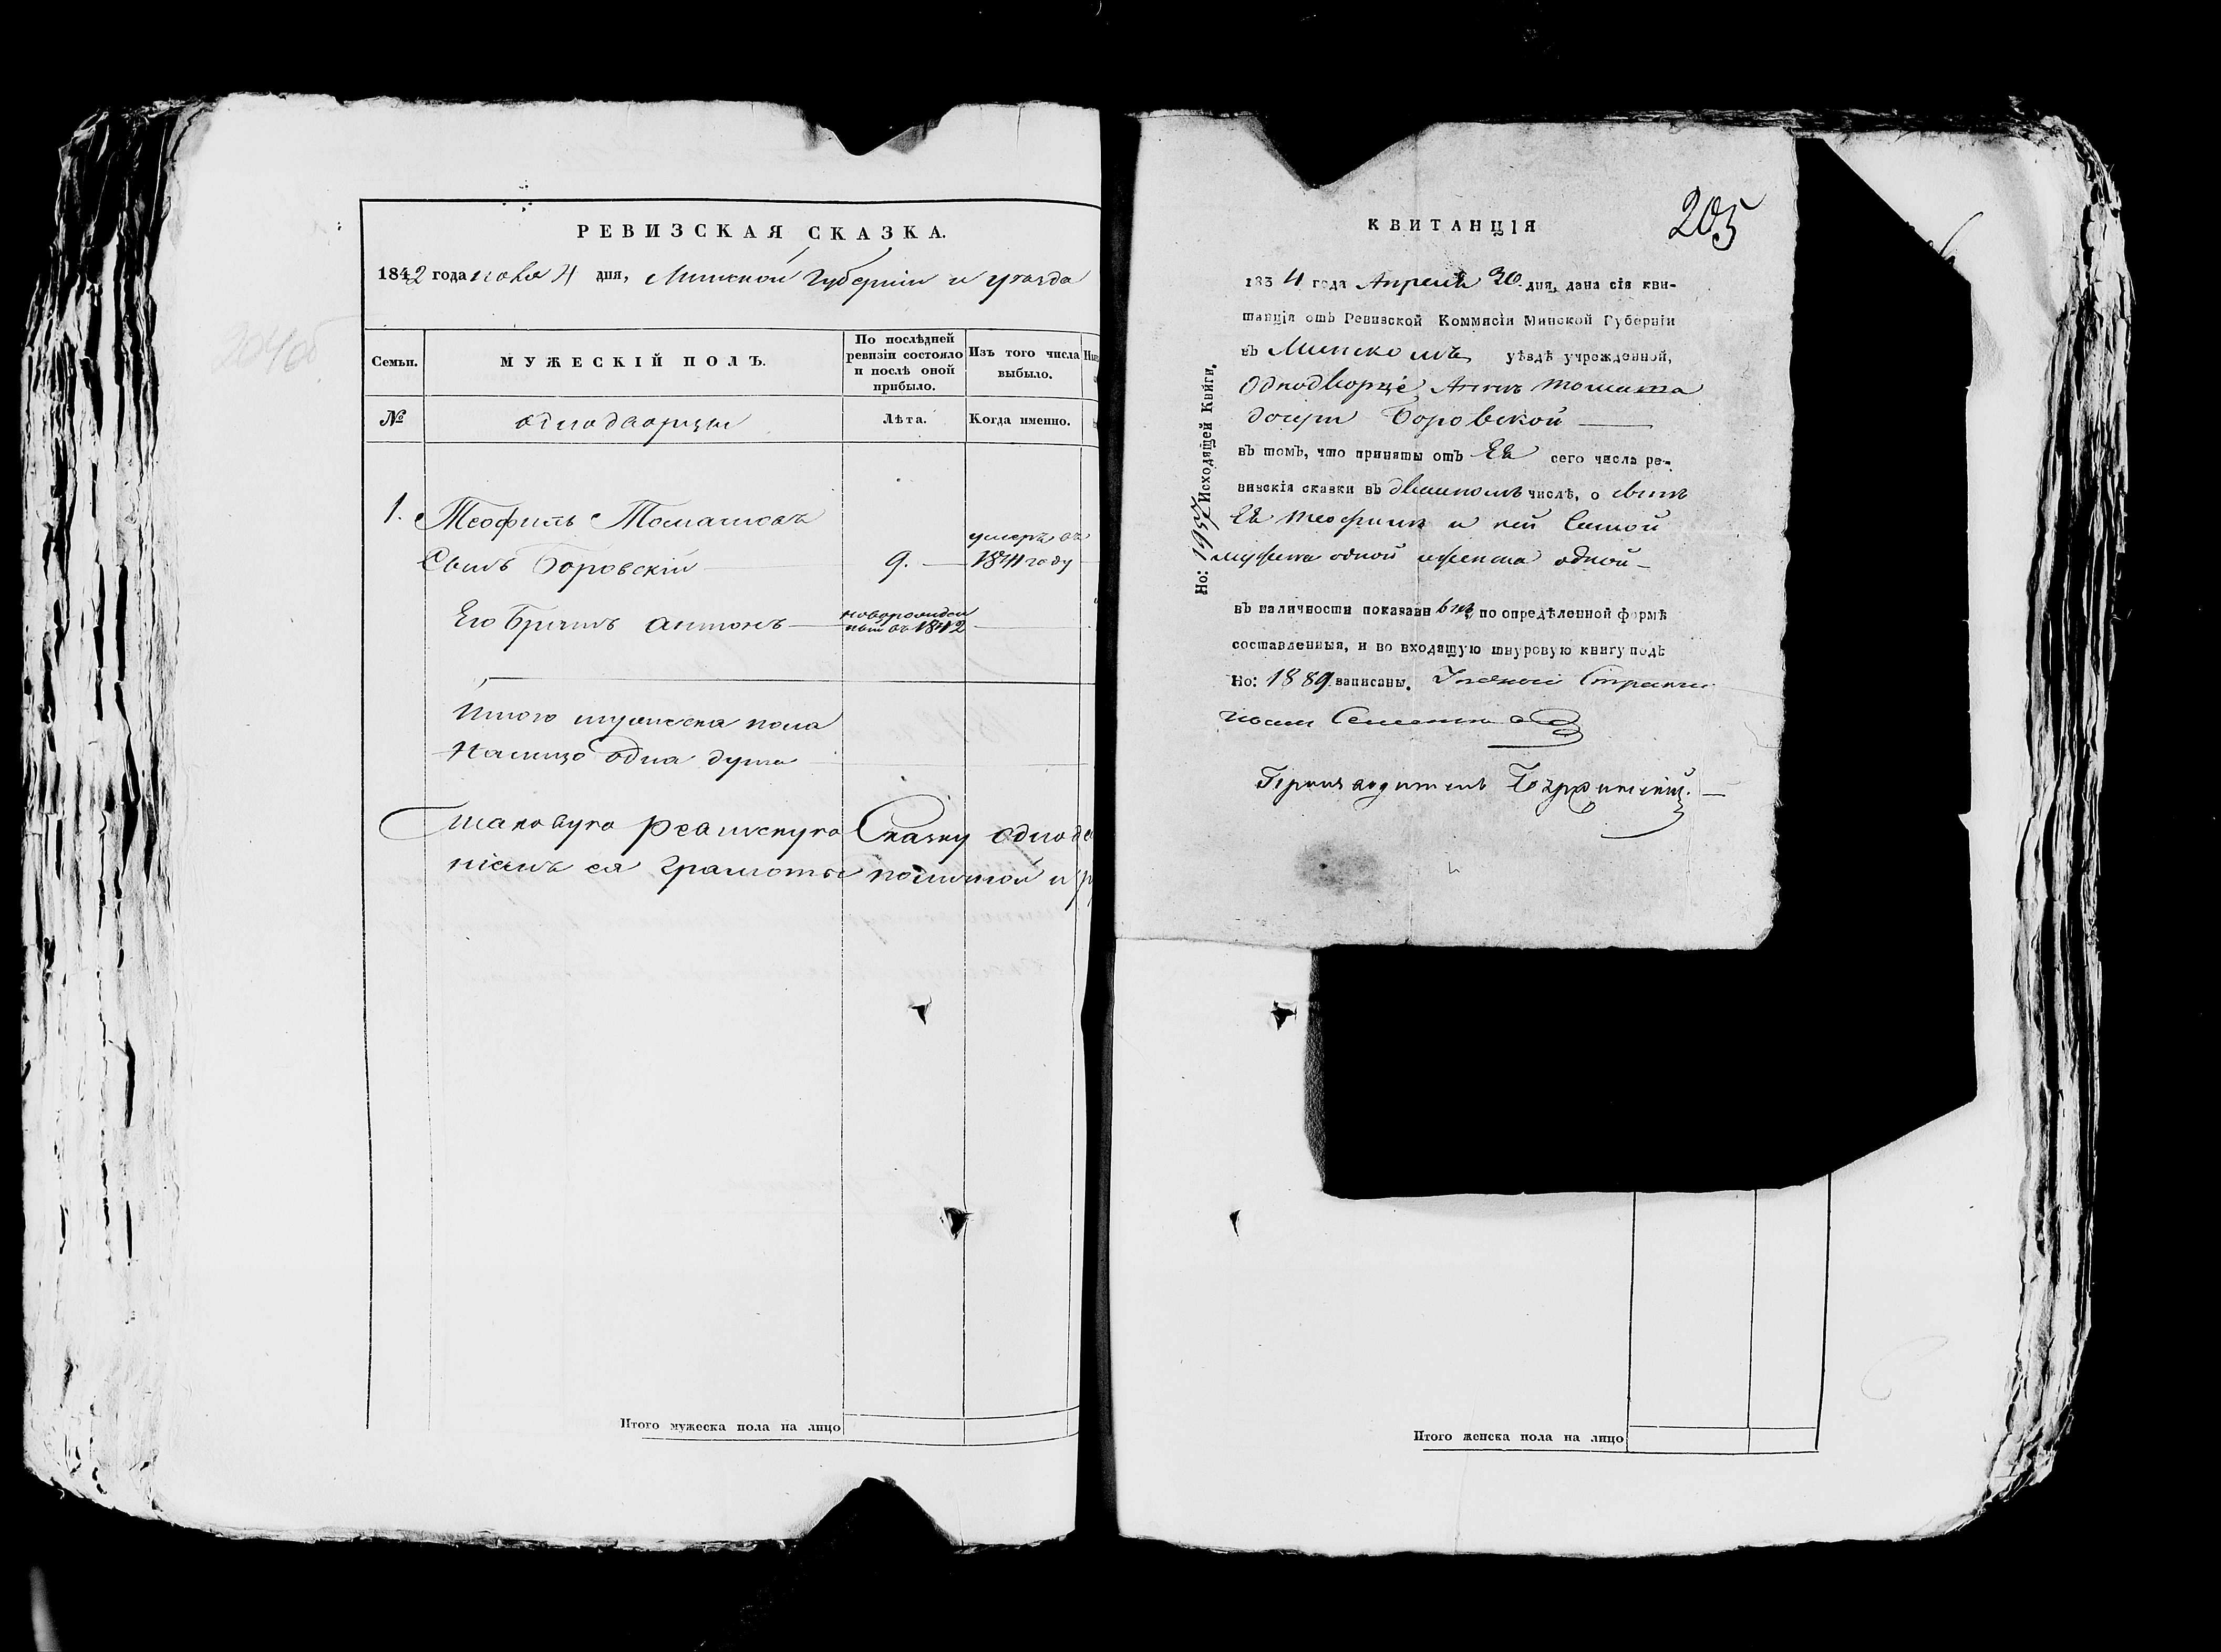 РЕВИЗСКАЯ СКАЗКА.
1842 года ноября 4 дня, Минской Губерніи и уѣзда
Семьи.
МУЖЕСКІЙ ПОЛЪ.
По послѣдней ревизіи состояло и послѣ оной прибыло.
Изъ того числа выбыло.
№
однодворцы
Лѣта.
Когда именно.
1. Теофиль Томашовъ
умеръ въ
Сынъ Боровскій 9. 1841 году
Его Братъ Антонъ новорожден
ный въ 1842
Итого мужеска пола
Налицо одна душа
Таковую ревизскую Сказку однодв
ніемъ ея грамоты по личной и р
Итого мужеска пола на лицо
205
КВИТАНЦІЯ
1834 года Апреля 30 дня, дана сія кви-
танція отъ Ревизской Коммисіи Минской Губерніи
въ Минскомъ уѣздѣ учрежденной,
Однодворце Аннѣ Томаша
дочери Боровской
въ томъ, что приняты отъ Ея сего числа ре-
визскія сказки въ двойномъ числѣ, о сынѣ
Ея Теофилѣ и ней Самой
мужеска одной женска одной
въ наличности показанныхъ, по опредѣленной формѣ
составленныя, и во входящую шнуровую книгу подъ
Но: 1889 записаны. Уездной Стряпчи
Производитель
Но: 1955 Исходящей Книги.
Итого женска пола на лицо